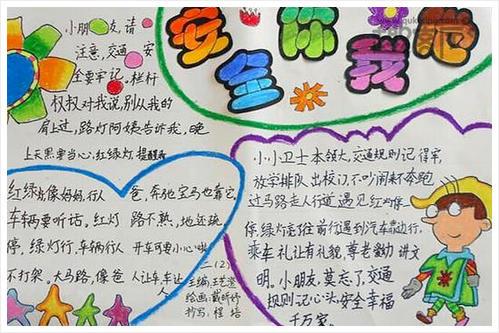 安全你我他
小朋友,请
注意,交通安
全要牢记。栏杆
杈杈对我说,别从我的
肩上过,路灯阿姨告诉我,晚
上天黑要当心,红绿灯提醒我
红绿灯像妈妈,行人
车辆要听话。红灯
停,绿灯行,车辆行人
不打架。大马路,像爸
爸,奔驰宝马也靠它。
路不熟,地还疏
开车可要小心
人让车,车让人
二(2)
主编:王芷莹
绘画:戴昕婷
抄写:程培
小小卫士本领大,交通规则记得牢,
放学排队出校门,不吵闹来不奔跑
过马路走人行道,遇见红灯停
停,绿灯亮往前行遇到汽车靠边行,
乘车礼让有礼貌,尊老爱幼讲文
明。小朋友,莫忘了,交通
规则记心头安全幸福
千万家。